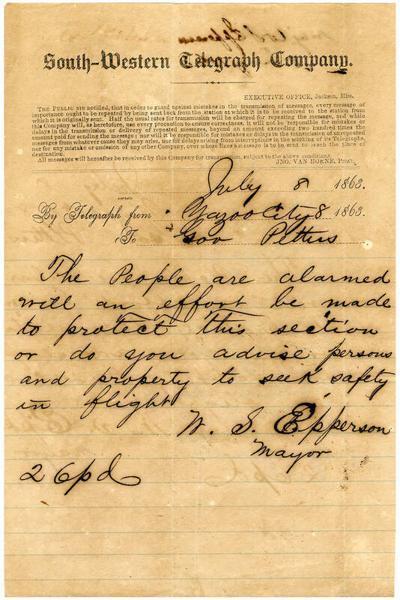 South-Western Telegraph Company.
EXECUTIVE OFFICE, Jackson, Miss.
THE PUBLIC are notified, that in order to guard against mistakes in the transmission of messages, every message of
importance ought to be repeated by being sent back from the station at which it is to be received to the station from
which it is originally sent. Half the usual rates for transmission will be charged for repeating the message, and while
this Company will, as heretofore, use every precaution to ensure correctness, it will not be responsible for mistakes or
delays in the transmission or delivery of repeated messages, beyond an amount exceeding two hundred times the
amount paid for sending the message; nor will it be responsible for mistakes or delays in the transmission of unrepeated
messages from whatever cause they may arise, nor for delays arising from interruptions in the working of its Telegraphs,
nor for any mistake or omission of any other Company, over whose lines a message is to be sent to reach the place of
destination.
All messages will hereafter be received by this Company for transmission, subject to the above conditions.
JNO. VAN HORNE, Pres't.
July 8 1863.
By Telegraph from Yazoo City 8 1863.
To Gov Pettus
The People are alarmed
will an effort be made
to protect this section
or do you advise persons
and property to seek safety
in flight
W. S. Epperson
Mayor
26pd